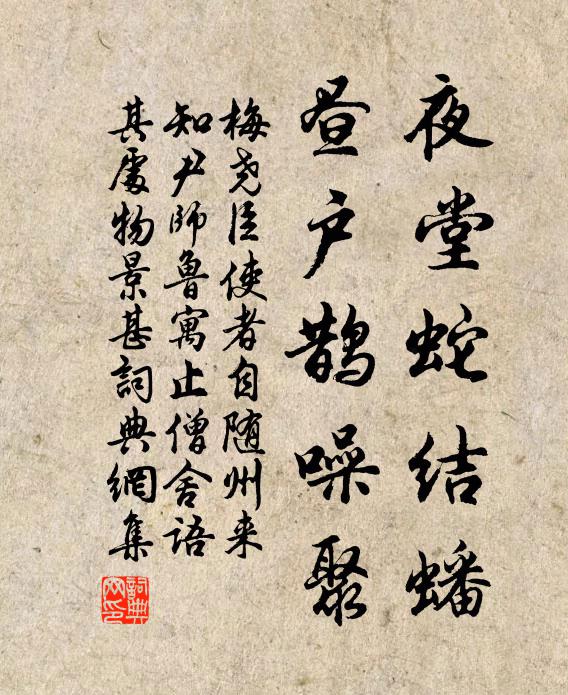 夜堂蛇结蟠
昼户鵲噪聚
梅尧臣使者自随州来
知尹師魯寓止僧舍語
其處物景甚詞典網集
詞典网印